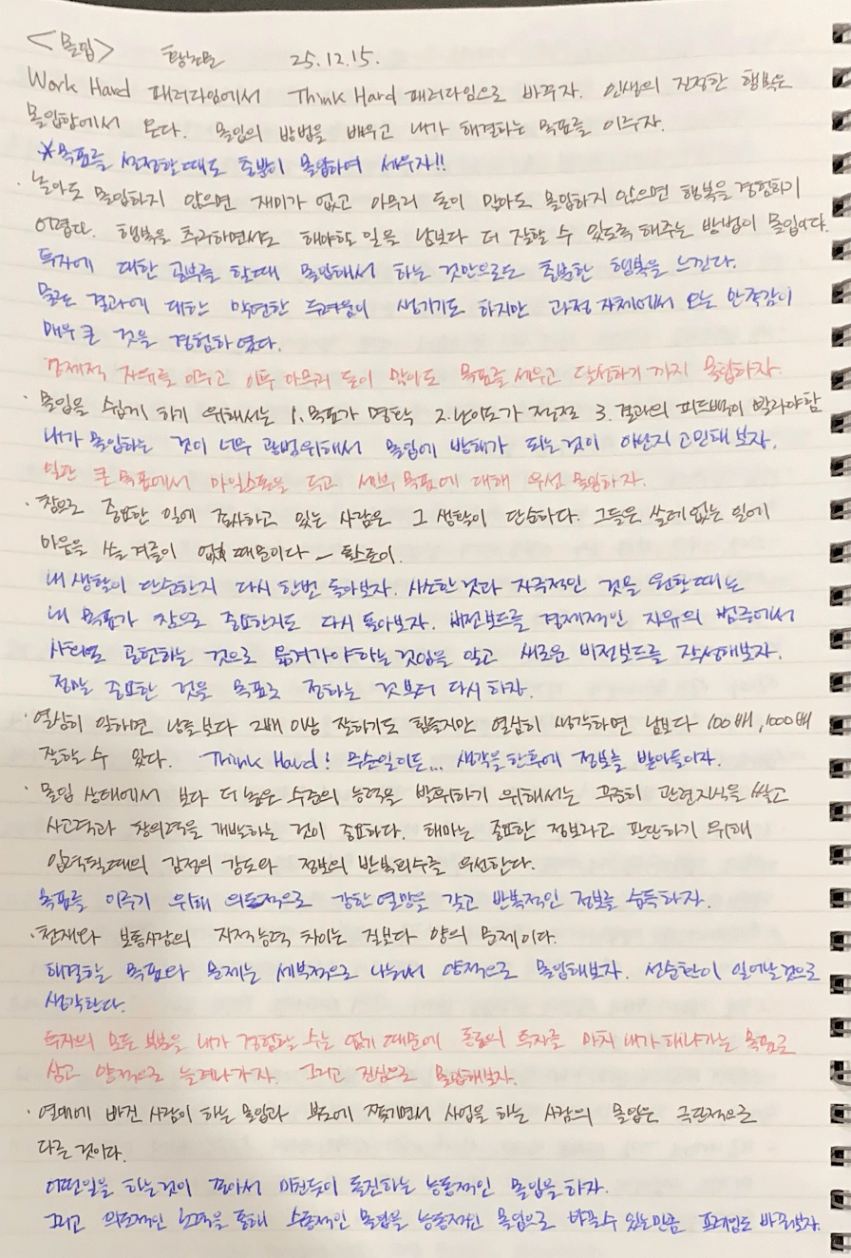 <몰입> 황농문 25.12.15.
Work Hard 패러다임에서 Think Hard 패러다임으로 바꾸자. 인생의 진정한 행복은
몰입함에서 온다. 몰입의 방법을 배우고 내가 해결하는 목표를 이루자.
*목표를 설정할때도 충분히 몰입하여 세우자!!
· 놀아도 몰입하지 않으면 재미가 없고 아무리 돈이 많아도 몰입하지 않으면 행복을 경험하기
어렵다. 행복을 추구하면서도 해야할 일을 남보다 더 잘할 수 있도록 해주는 방법이 몰입이다.
투자에 대한 공부를 할때 몰입해서 하는 것만으로도 충분한 행복을 느낀다.
물론 결과에 대한 막연한 두려움이 생기기도 하지만 과정 자체에서 오는 만족감이
매우 큰 것을 경험하였다.
경제적 자유를 이루고 이후 아무리 돈이 많아도 목표를 세우고 달성하기 까지 몰입하자.
· 몰입을 쉽게 하기 위해서는 1. 목표가 명확 2. 난이도가 적절 3. 결과의 피드백이 빨라야함
내가 몰입하는 것이 너무 광범위해서 몰입에 방해가 되는것이 아닌지 고민해보자.
일단 큰 목표에서 마일스톤을 두고 세부 목표에 대해 우선 몰입하자.
· 참으로 중요한 일에 종사하고 있는 사람은 그 생활이 단순하다. 그들은 쓸데없는 일에
마음을 쓸 겨를이 없기 때문이다 - 톨스토이.
내 생활이 단순한지 다시 한번 돌아보자. 사소한 것과 자극적인 것을 원할때는
내 목표가 참으로 중요한지도 다시 돌아보자. 비전보드를 경제적인 자유의 범주에서
사회로 공헌하는 것으로 옮겨가야하는것임을 알고 새로운 비전보드를 작성해보자.
정말 중요한 것을 목표로 정하는 것부터 다시 하자.
· 열심히 일하면 남들보다 2배 이상 잘하기도 힘들지만 열심히 생각하면 남보다 100배, 1000배
잘할 수 있다. Think Hard! 무슨일이든... 생각을 한후에 정보를 받아들이자.
· 몰입 상태에서 보다 더 높은 수준의 능력을 발휘하기 위해서는 꾸준히 관련지식을 쌓고
사고력과 창의력을 개발하는 것이 중요하다. 해마는 중요한 정보라고 판단하기 위해
입력될때의 감정의 강도와 정보의 반복횟수를 우선한다.
목표를 이루기 위해 의도적으로 강한 열망을 갖고 반복적인 정보를 습득하자.
· 천재와 보통사람의 지적능력 차이는 질보다 양의 문제이다.
해결할 목표와 문제는 세부적으로 나눠서 양적으로 몰입해보자. 선순환이 일어날것으로
생각한다.
투자의 모든 부분을 내가 경험할 수는 없기 때문에 투자를 마치 내가 해나가는 목표로
삼고 양적으로 늘려나가자. 그리고 진심으로 몰입해보자.
· 연애에 빠진 사람이 하는 몰입과 부도에 쫓기면서 사업을 하는 사람의 몰입은 극단적으로
다른 것이다.
어떤일을 하는것이 좋아서 미친듯이 돌진하는 능동적인 몰입을 하자.
그리고 의도적인 노력을 통해 수동적인 몰입을 능동적인 몰입으로 바꿀수 있는만큼 프레임도 바꿔보자.